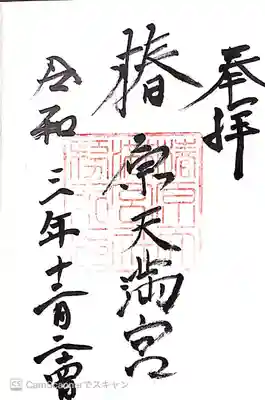 奉拝
椿原天満宮
令和三年十二月二日
CS CamScannerでスキャン